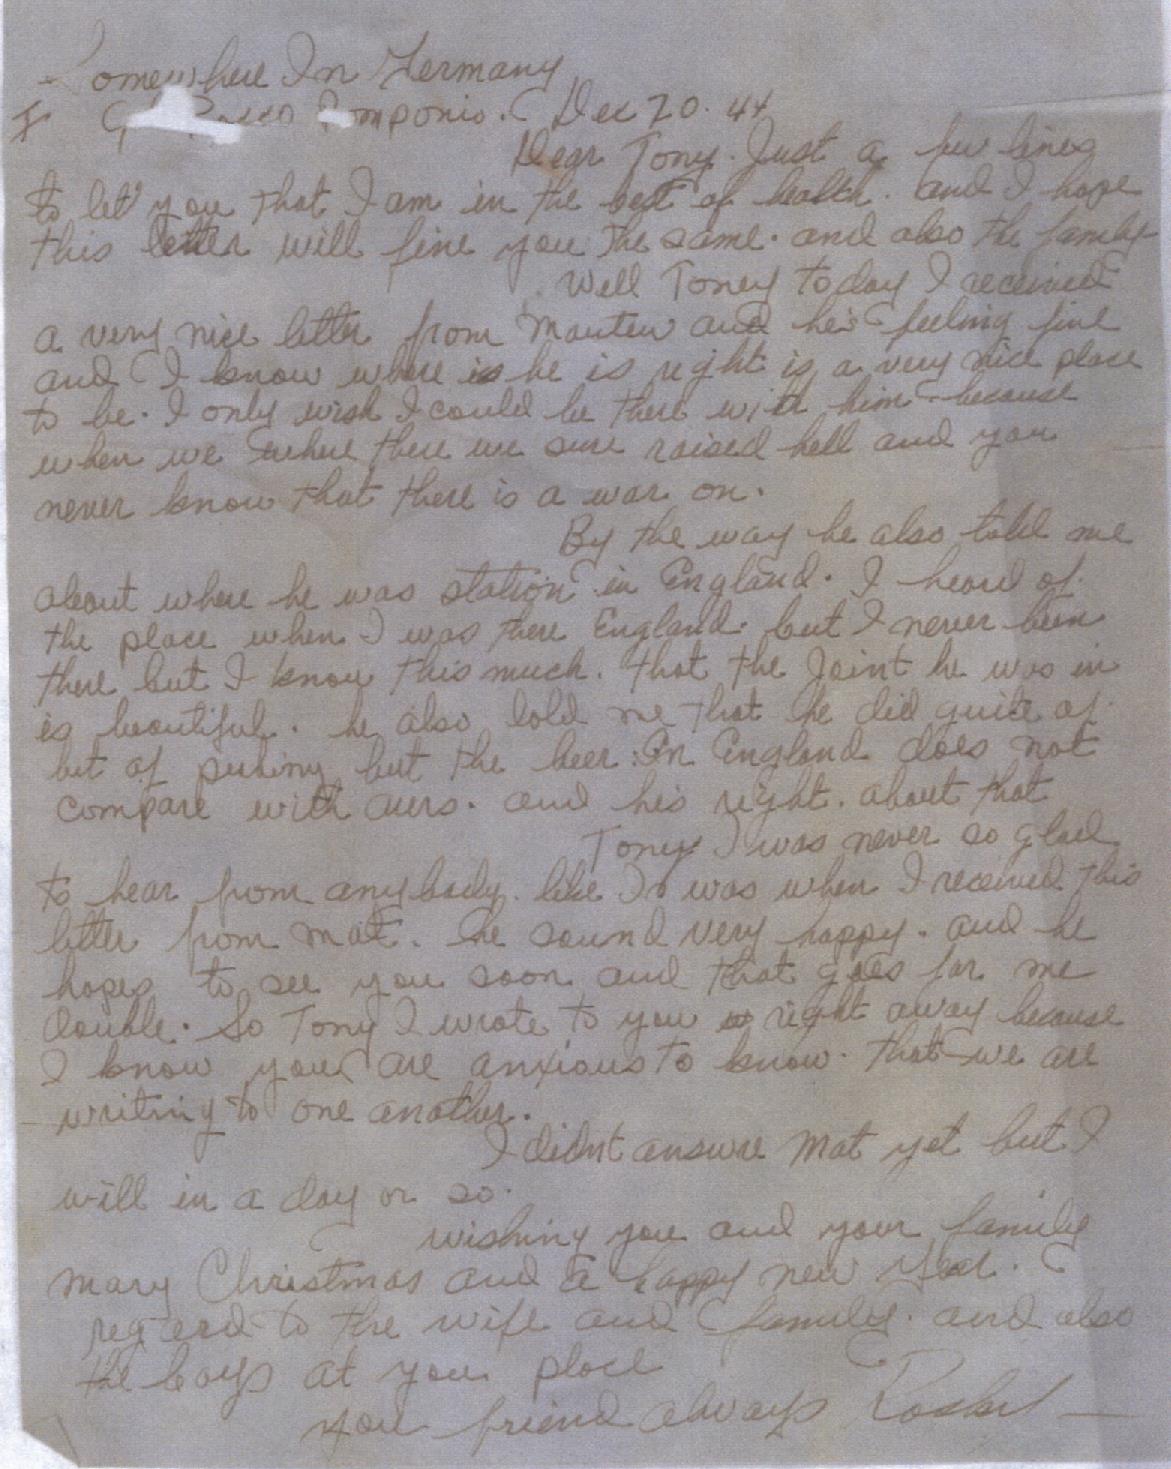 Somewhere In Germany
Pomponio. Dec 20. 44
Dear Tony. Just a few lines
to let you that I am in the best of health. and I hope
this letter will fine you the same. and also the family
Well Toney today I received
a very nice letter from and he's feeling fine
and I know where is he is right is a very nice place
to be. I only wish I could be there with him because
when we where there we sure raised hell and you
never know that there is a war on.
By the way he also told me
about where he was station in England. I heard of
the place when I was there England. but I never been
there but I know this much. that the Joint he was in
is beautiful. he also told me that he did quite of
but of but the beer In England does not
compare with ours. and his right. about that
Tony I was never so glad
to hear from anybody. like I was when I received this
letter from Mat. he sound very happy. and he
hopes to see you soon and that goes for me
double. So Tony I wrote to you right away because
I know you are anxious to know. that we are
writing to one another.
I didnt answre Mat yet but I
will in a day or so.
wishing you and your family
mary Christmas and a happy new Year.
regard to the wife and family. and also
the boys at you place
you friend always